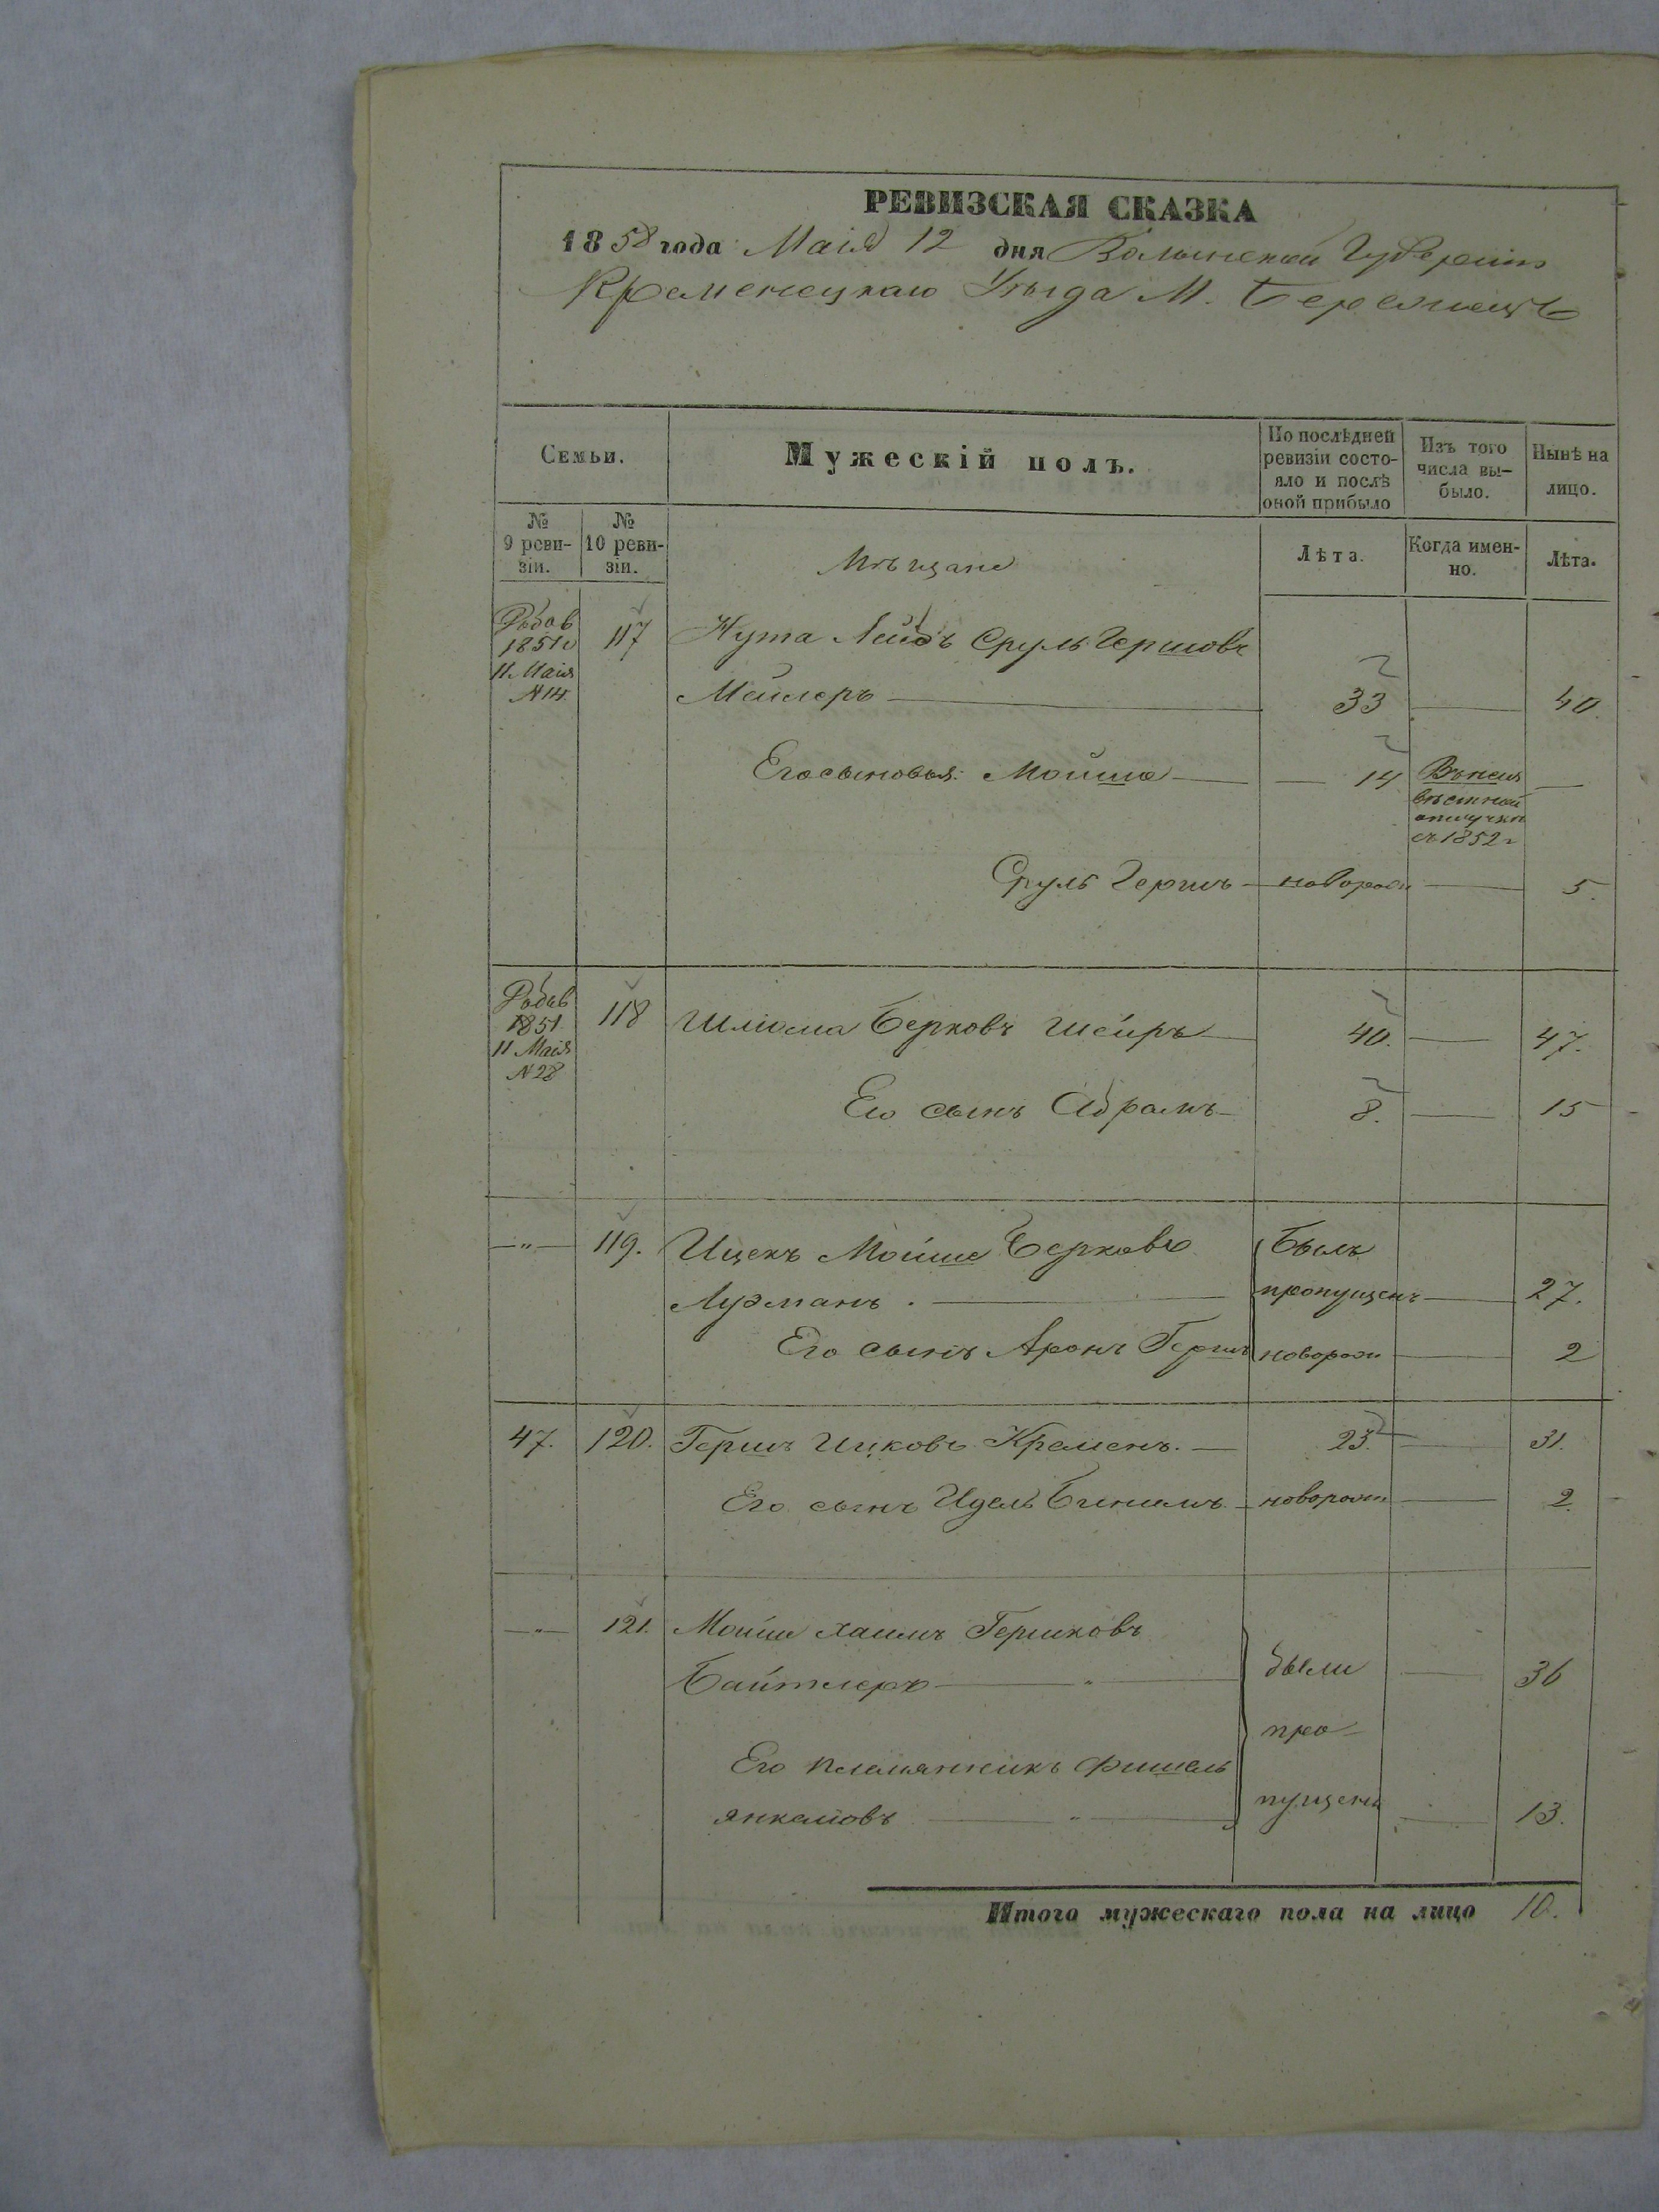 РЕВИЗСКАЯ СКАЗКА
1858 года Маія 12 дня Волынской Губерніи
Кременецкаго Уѣзда М. Бережецъ
Семьи.
Мужескій полъ.
По послѣдней ревизіи состо-яло и послѣ оной прибыло
Изъ того числа вы-было.
Нынѣ на лицо.
№ 9 реви-зіи.
№ 10 реви-зіи.
Мѣщане
Лѣта.
Когда имен-но.
Лѣта.
1851 11 Маія N 14
117
Нута Лейбъ Сруль Гершовъ
Мейлеръ
33
40.
Его сыновья: Мойше
14
съ 1852 г
Сруль Гершъ
новорож
5.
1851 11 Маія N 28
118
Шліома Берковъ Шейръ
40.
47.
Его сынъ Абрамъ
8.
15
— " —
119.
Ицекъ Мойше Берковъ
Былъ
Лузманъ.
пропущенъ
27.
Его сынъ Аронъ Гершъ
новорож
2
47.
120.
Гершъ Ицковъ Кременъ.
23.
31.
Его сынъ Идель Биниамъ
новорож
2.
— " —
121.
Мойше Хаимъ Гершковъ
Байтлеръ — " —
были
36
про-
Его племянникъ Фишель
пущены
Янкелювъ — " —
13.
Итого мужескаго пола на лицо 10.